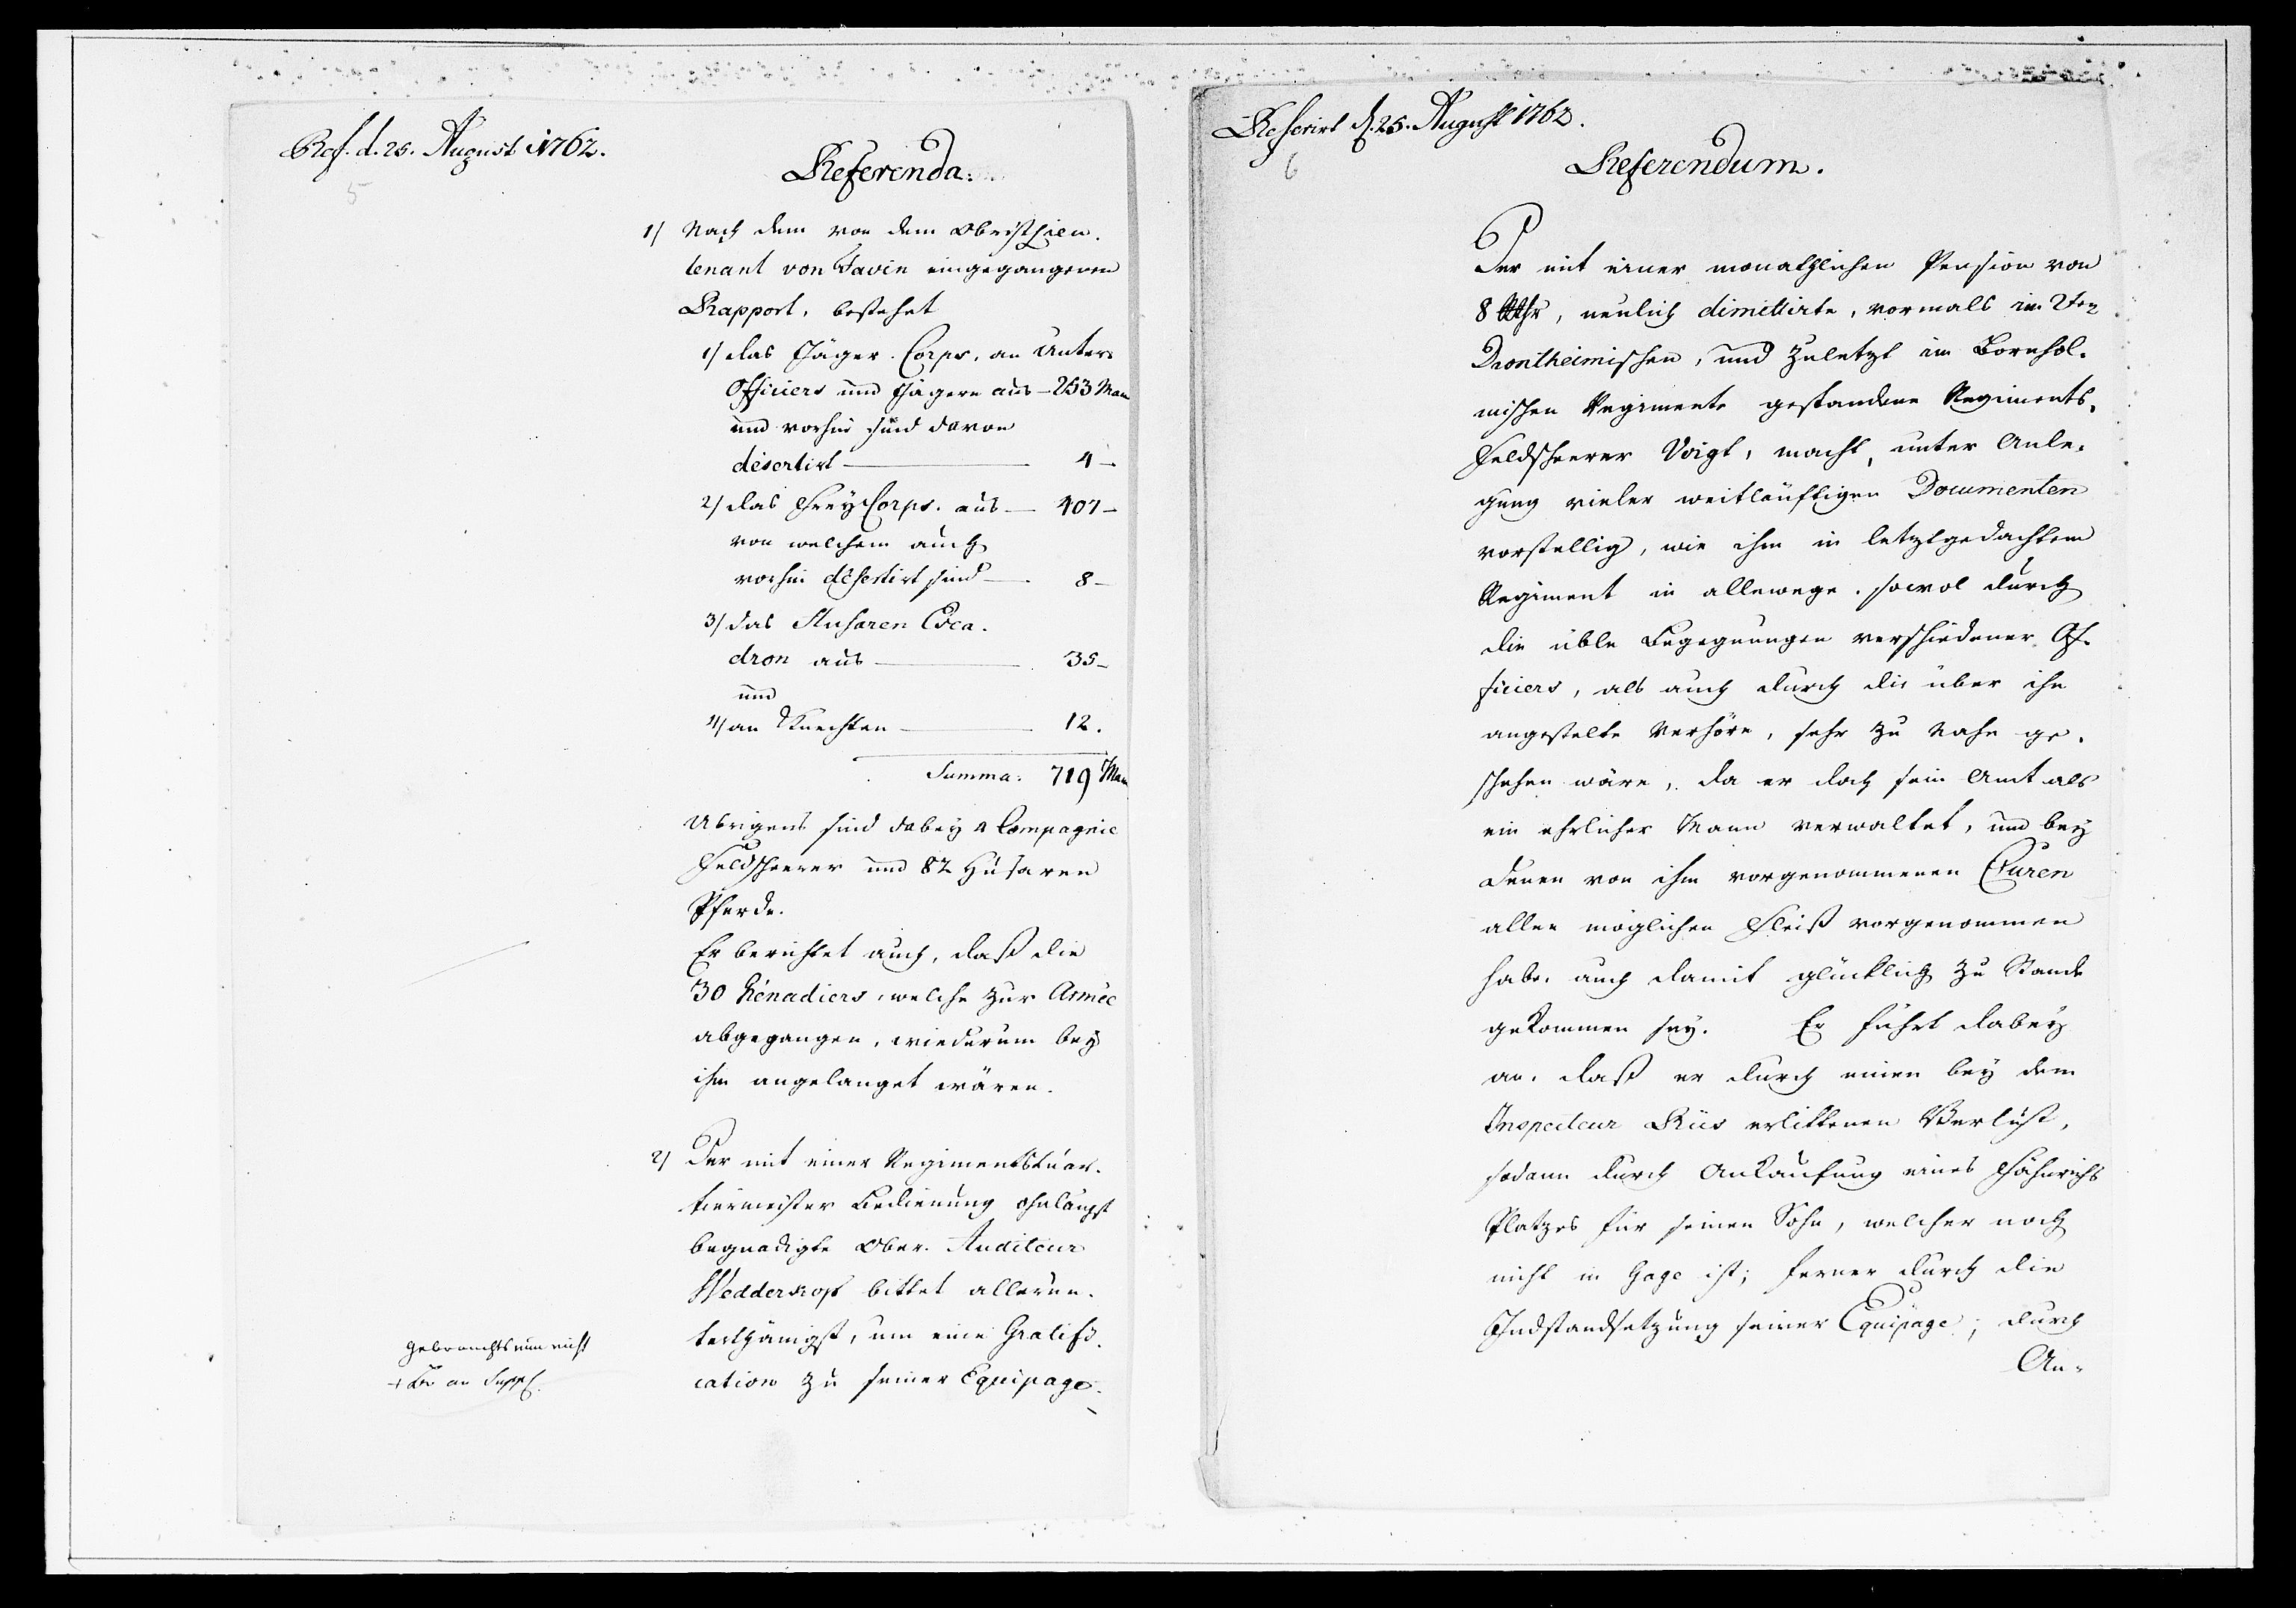 Ref. d. 25. August 1762.
5
Referenda.
1/ Nach dem von dem Obristlieu-
tenant von Favin eingegangenen
Rapport, bestehet
1/ das Jäger-Corps, an Unter-
Officiers und Jägern aus - 253 Mann
und vorhin sind davon
desertirt - 4 -
2/ das FreyCorps aus - 407 -
von welchem auch
vorhin desertirt sind - 8 -
3/ das Husaren Esca-
dron aus - 35 -
und
4/ an Knechten - 12.
Summa. 719 Mann
Übrigens sind dabey 2 Compagnie
Feldscheerer und 82 Husaren
Pferde.
Er berichtet auch, daß die
30 Grenadiers, welche zur Armée
abgegangen, wiederum bey
ihm angelanget wären.
2/ Der mit einer Regimentsquar-
tiermeister Bedienung ohnlängst
begnadigte Ober-Auditeur
Wedderkop bittet allerun-
terthänigst, um eine Gratifi-
cation zu seiner Equipage.
gebrauchts nun nicht
Referirt d. 25. August 1762.
6
Referendum.
Der mit einer monathlichen Pension von
8 Rthr, neulich dimittirte, vormals im 2ten
Drontheimischen, und zuletzt im Bornhol-
mischen Regimente gestandene Regiments-
Feldscheerer Voigt, macht, unter Anle-
gung vieler weitläuftigen Documenten
vorstellig, wie ihm in letztgedachtem
Regiment in allewege, sowol durch
die üble Begegnungen verschiedener Of-
ficiers, als auch durch die über ihn
angestelte Verhöre, sehr zu nahe ge-
schehen wäre, da er doch sein Amt als
ein ehrlicher Mann verwaltet, und bey
denen von ihm vorgenommenen Curen
allen möglichen Fleiß vorgenommen
habe, auch damit glücklich zu Stande
gekommen sey. Er führt dabey
an, daß er durch einen bey dem
Inspecteur Riis erlittenen Verlust,
sodann durch Ankaufung eines Fähnrichs
Platzes für seinen Sohn, welcher noch
nicht in Gage ist; ferner durch die
Indstandsetzung seiner Equipage; durch
An-